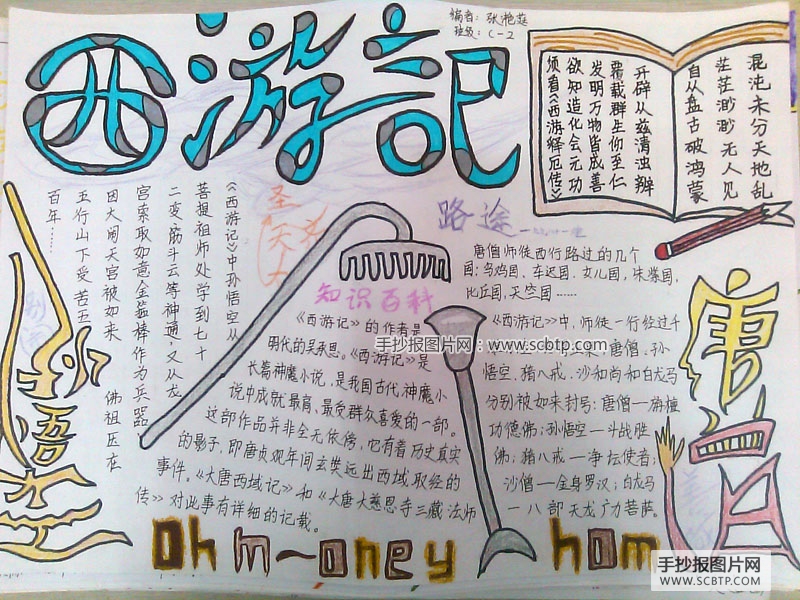 西游記
编者：张艳莛
班级：C-2
混沌未分天地乱
茫茫渺渺无人见
自从盘古破鸿蒙
开辟从兹清浊辨
覆载群生仰至仁
发明万物皆成善
欲知造化会元功
须看《西游释厄传》
《西游记》中孙悟空从
菩提祖师处学到七十
二变、筋斗云等神通，又从龙
宫索取如意金箍棒作为兵器
因大闹天宫被如来佛祖压在
五行山下受苦五
百年……
知识百科
《西游记》的作者是
明代的吴承恩。《西游记》是
长篇神魔小说，是我国古代神魔小
说中成就最高、最受群众喜爱的一部。
这部作品并非全无依傍，它有着历史真实
的影子，即唐贞观年间玄奘远出西域取经的
事件。《大唐西域记》和《大唐大慈恩寺三藏法师
传》对此事有详细的记载。
路途
唐僧师徒西行路过的几个
国：乌鸡国、车迟国、女儿国、朱紫国、
比丘国、天竺国……
《西游记》中，师徒一行经过千
唐僧、孙
悟空、猪八戒、沙和尚和白龙马
分别被如来封号：唐僧—旃檀
功德佛；孙悟空—斗战胜
佛；猪八戒—净坛使者；
沙僧—金身罗汉；白龙马
—八部天龙广力菩萨。
孙悟空
唐僧
Oh m~oney hom
手抄报图片网：www.scbtp.com
手抄报图片网
WWW.SCBTP.COM